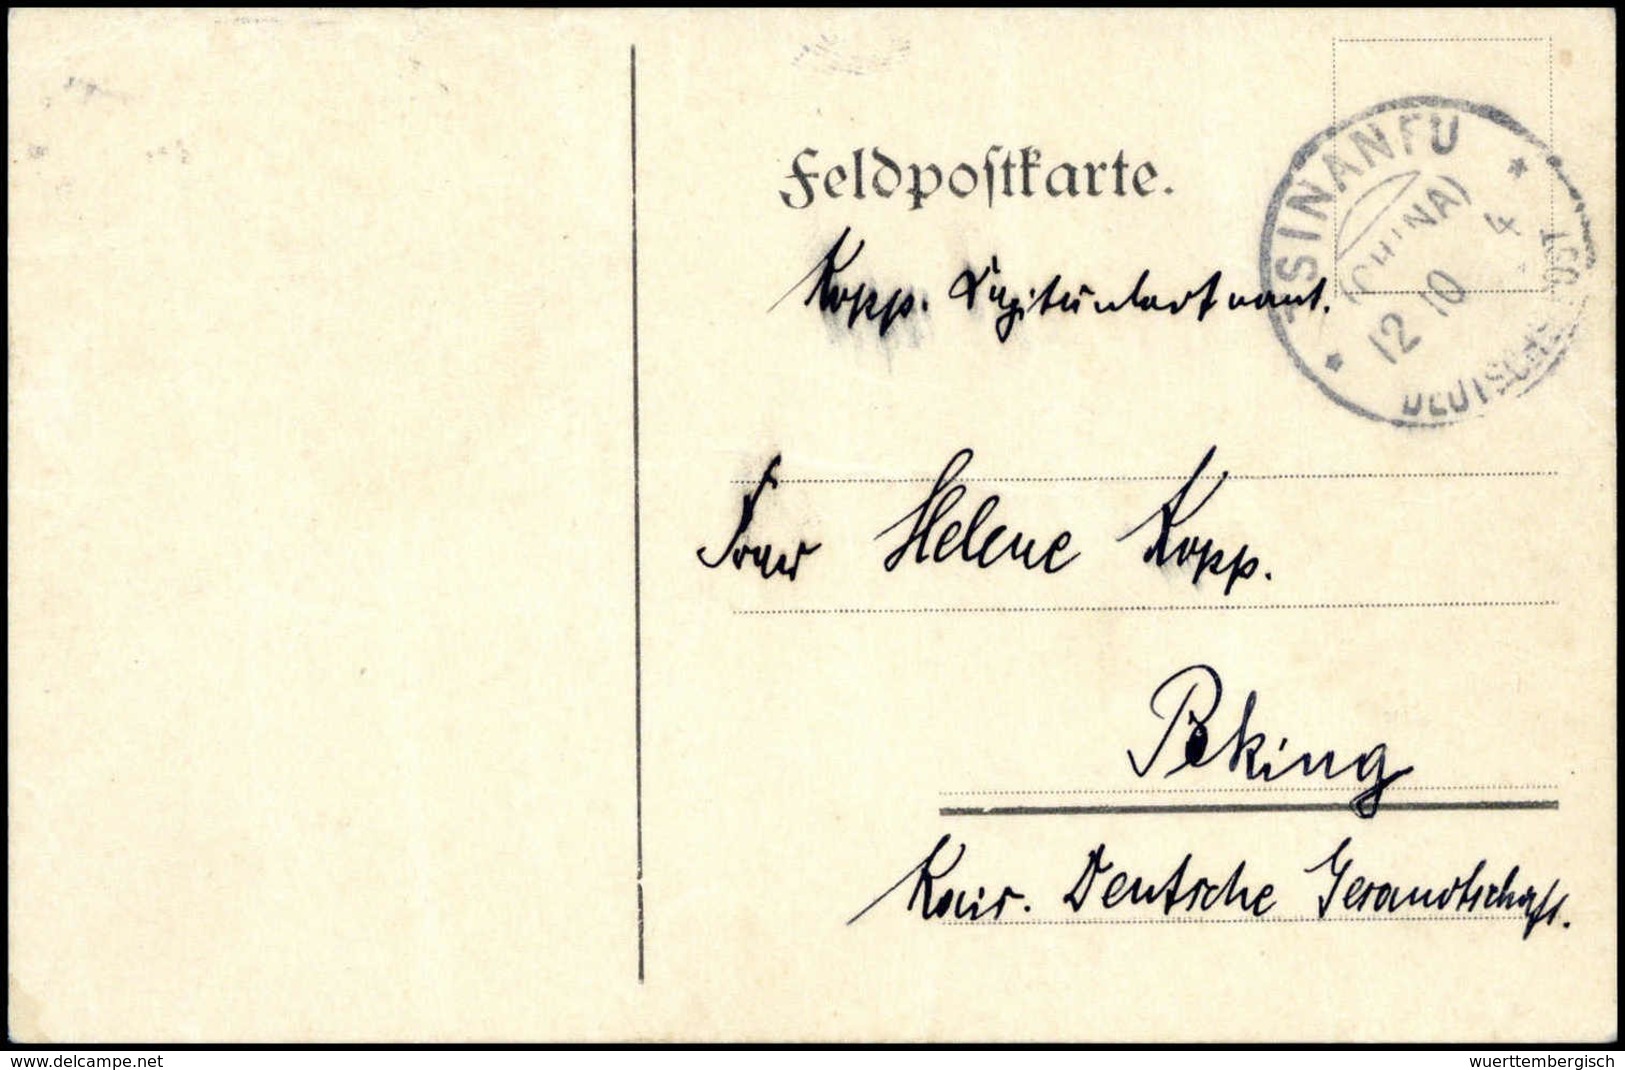 Feldpoſtkarte.
TSINANFU
(CHINA)
12 10 4
DEUTSCHE POST
Kopp.
Frau Helene Kopp.
Peking
Kais. Deutsche Gesandtschaft.
www.delcampe.net
wuerttembergisch